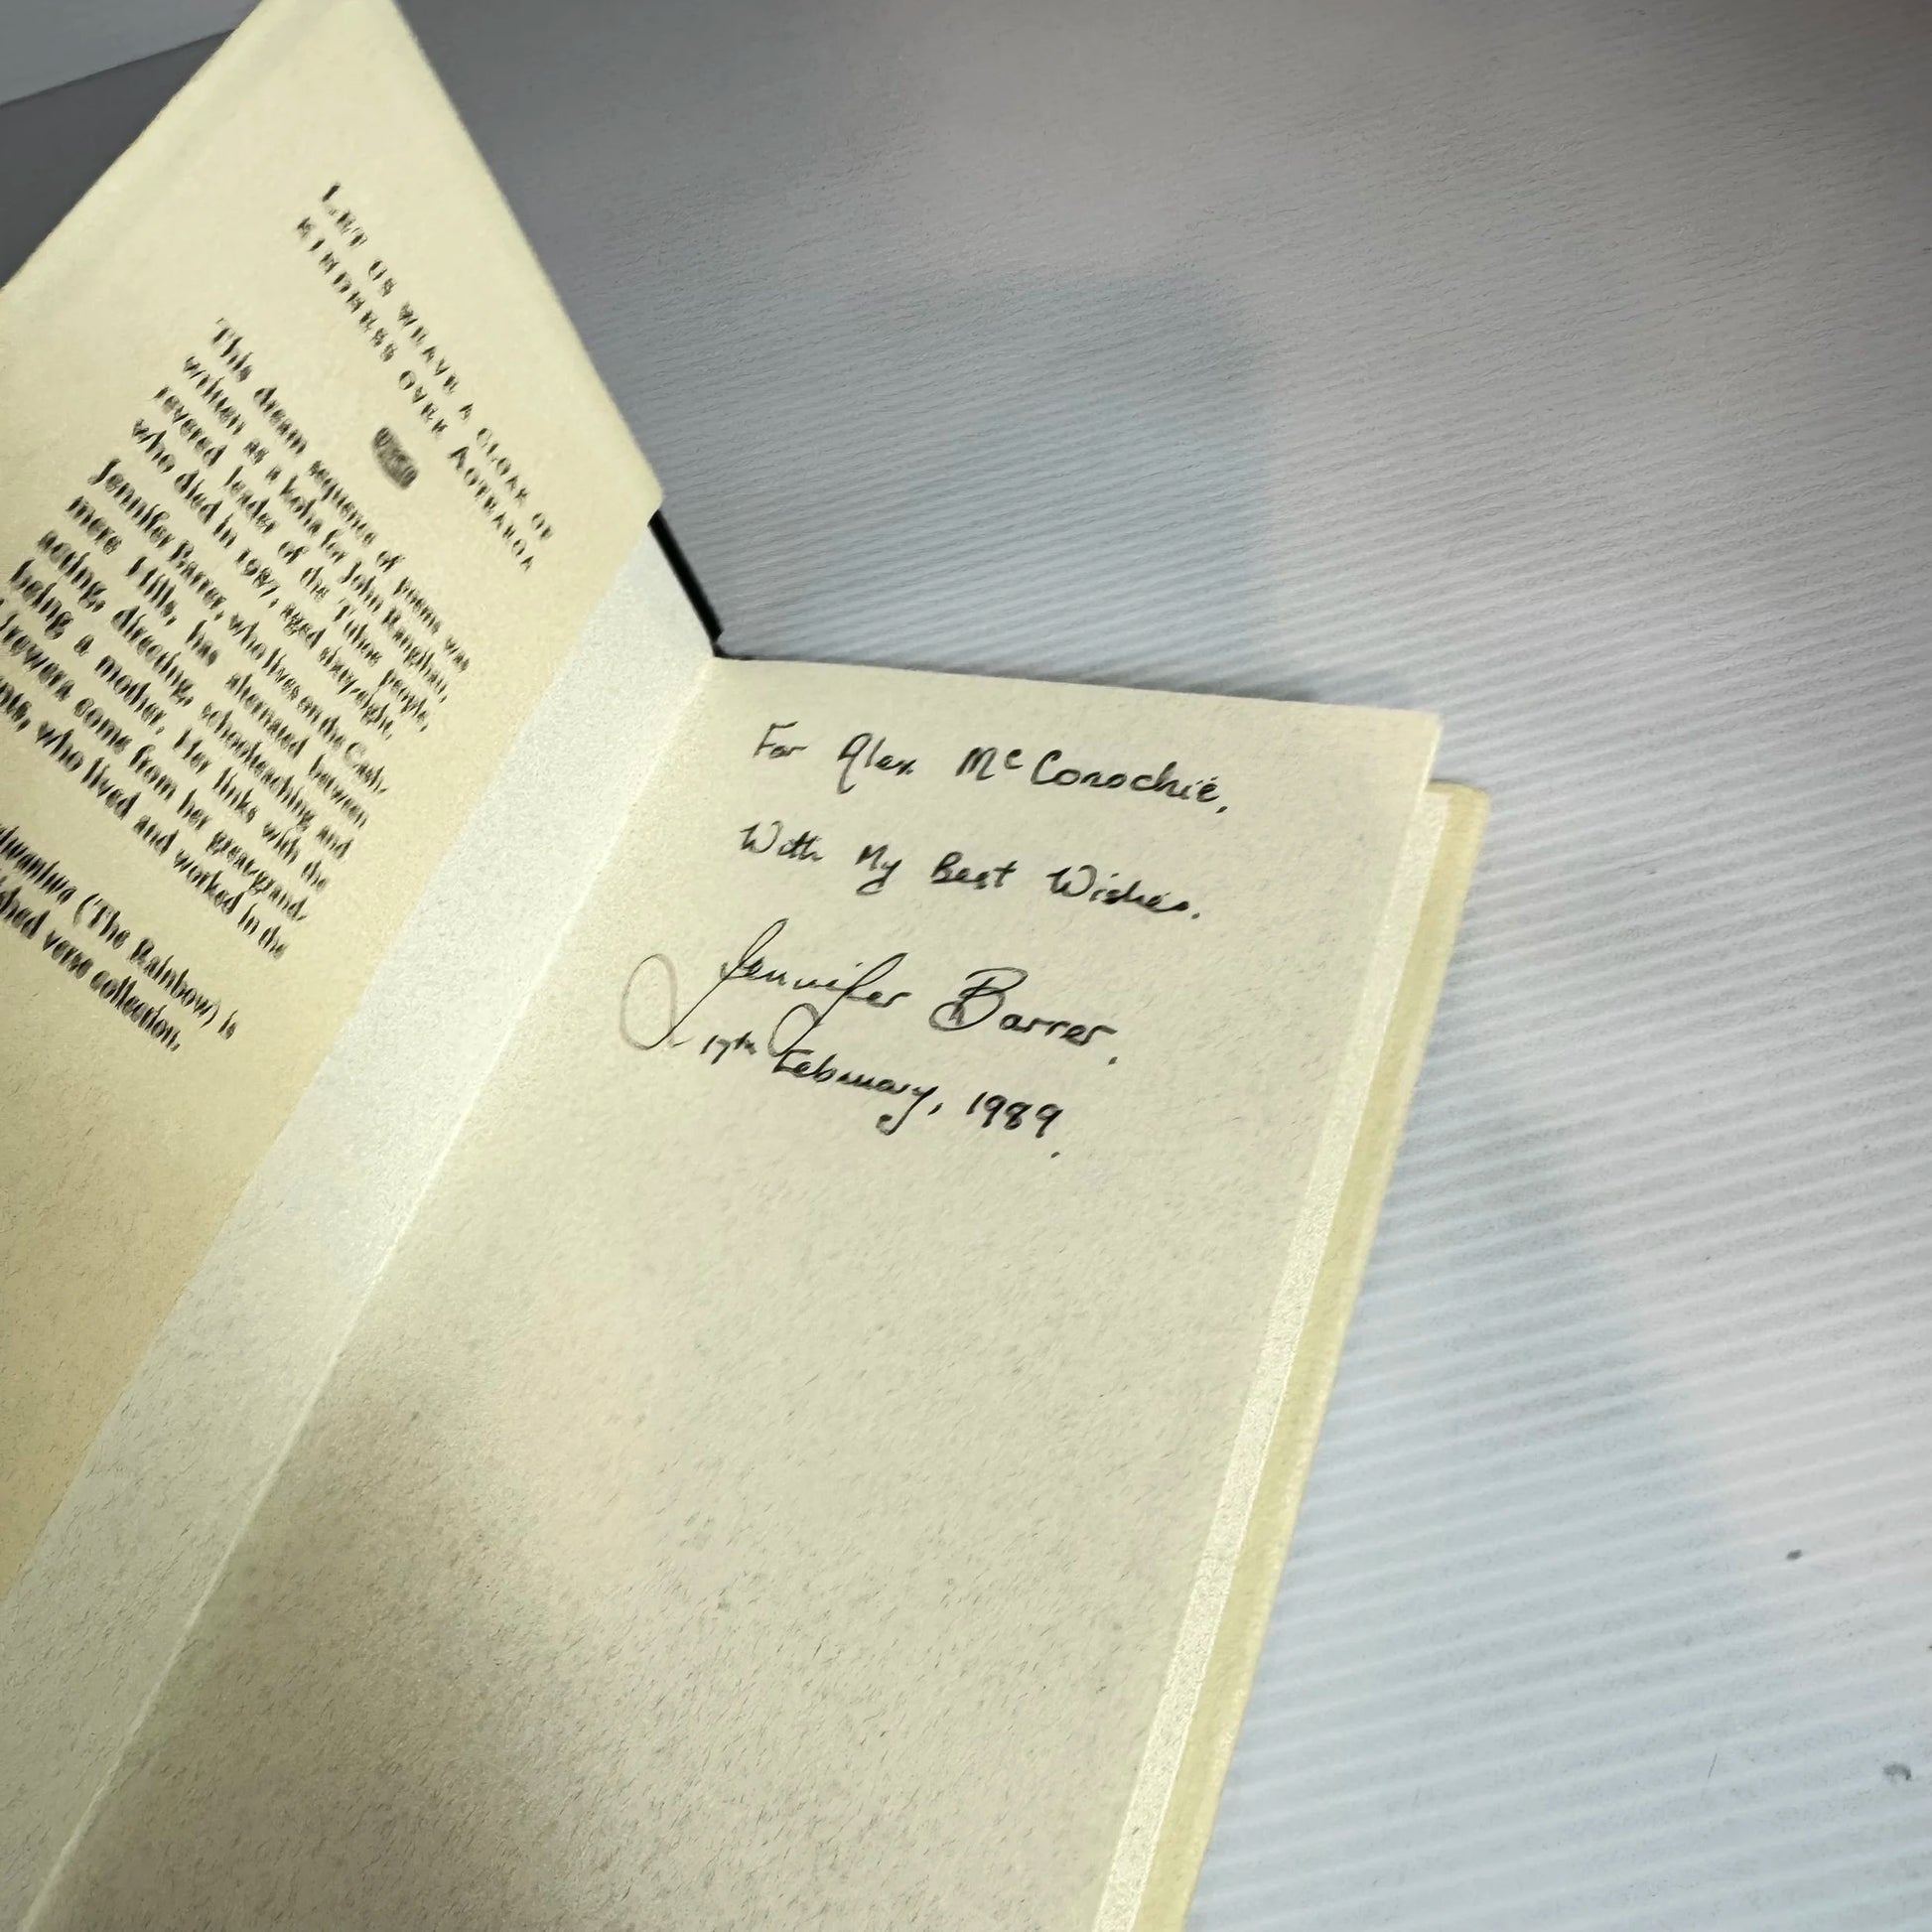 LET US WEAVE A CLOAK OF
KINDNESS OVER AOTEAROA
This dream sequence of poems was
written as a koha for John Rangihau,
revered leader of the Tuhoe people,
who died in 1987, aged sixty-eight.
Jennifer Barrer, who lives on the Cash-
mere Hills, has alternated between
acting, directing, schoolteaching and
being a mother. Her links with the
come from her great-grand-
who lived and worked in the
('The Rainbow) is
verse collection.
For Alex McConochie,
With My Best Wishes.
Jennifer Barrer.
17th February, 1989.